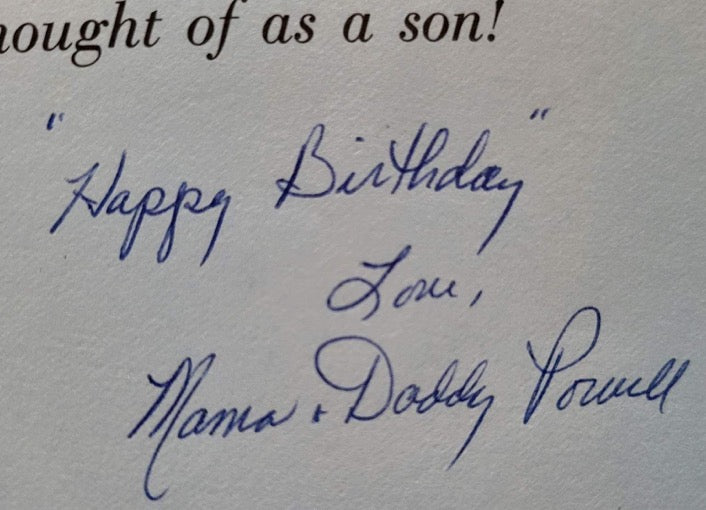 hought of as a son!
"Happy Birthday"
Love,
Mama & Daddy Powell